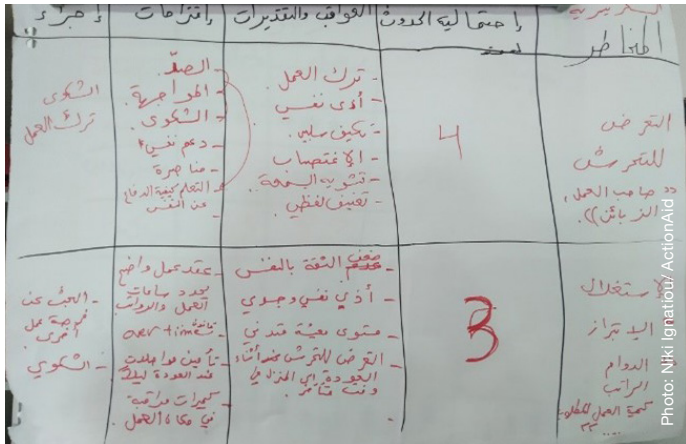 المخاطر
إحتمالية الحدوث
العواقب والتقديرات
إقتراحات
إجراء
التعرض
للتحرش
(( صاحب العمل،
الزبائن)).
4
- ترك العمل
- أذى نفسي
- تكيف سلبي.
- الإغتصاب
- تشويه السمعة.
- تعنيف لفظي.
- الصدّ.
- المواجهة.
- الشكوى.
- دعم نفسي
- مناصرة
- التعلم كيفية الدفاع
عن النفس
الشكوى
ترك العمل
الإستغلال
الابتزاز
الدوام
الراتب
كمية العمل
3
- ضعف الثقة بالنفس
- أذى نفسي وجسدي
- مستوى معيشة متدني
- التعرض للتحرش أثناء
العودة إلى المنزل في
وقت متأخر.
- عقد عمل واضح
محدد ساعات
العمل والرواتب
over time
- تأمين مواصلات
عند العودة ليلاً
- كميرات مراقبة
في مكان العمل.
- البحث عن
فرصة عمل
أخرى.
- الشكوي
Photo: Niki Ignatiou/ ActionAid